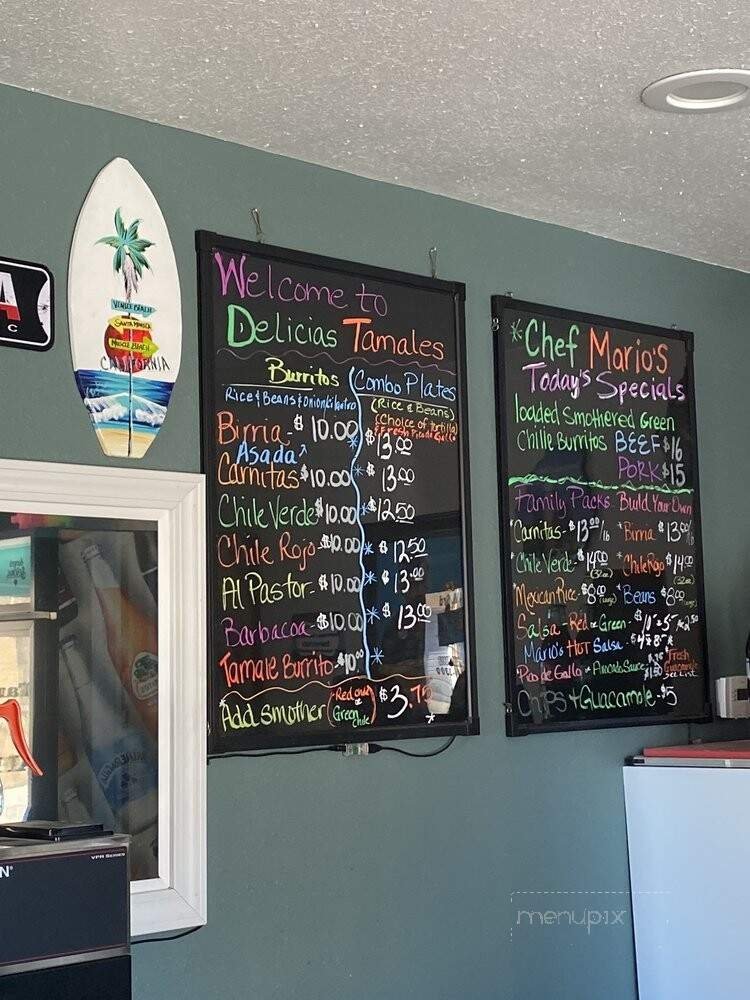 A
C
VENICE BEACH
SANTA MONICA
MUSCLE BEACH
CALIFORNIA
Welcome to
Delicias Tamales
Burritos
Rice & Beans & Onion & Cilantro
Birria - $10.00
Asada
Carnitas - $10.00
Chile Verde $10.00
Chile Rojo - $10.00
Al Pastor - $10.00
Barbacoa - $10.00
Tamale Burrito - $10.00
Combo Plates
(Rice & Beans)
(Choice of tortilla)
* $13.00
* $13.00
* $12.50
* $12.50
* $13.00
* $13.00
*
Add smother (Red or Green Chile) $3.
*Chef Mario's
Today's Specials
loaded Smothered Green
Chille Burritos BEEF $16
PORK $15
Family Packs Build Your Own
*Carnitas - $13.00/lb *Birria $13.00/lb
*Chile Verde - $14.00 (32oz) *Chile Rojo $14.00 (32oz)
*Mexican Rice $8.00 *Beans $8.00
Salsa - Red or Green -
Mario's Hot Salsa -
Pico de Gallo or Avocado Sauce Fresh Guacamole See List
Chips + Guacamole - $5
VPR SERIES
N®
menupix